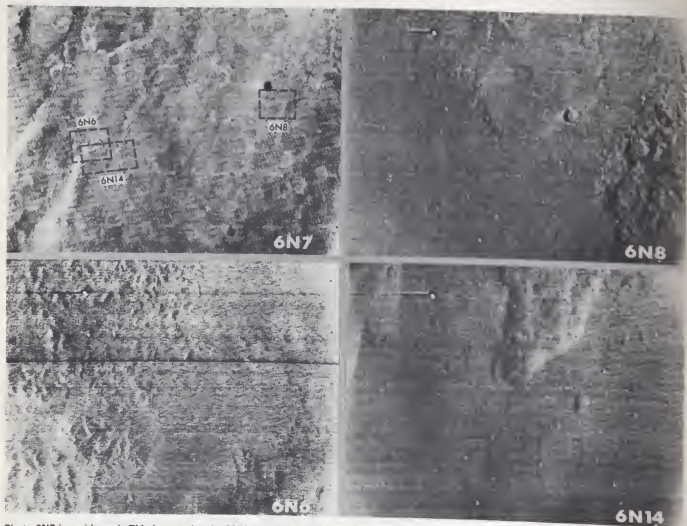 6N6
6N8
6N14
6N7
6N8
6N6
6N14